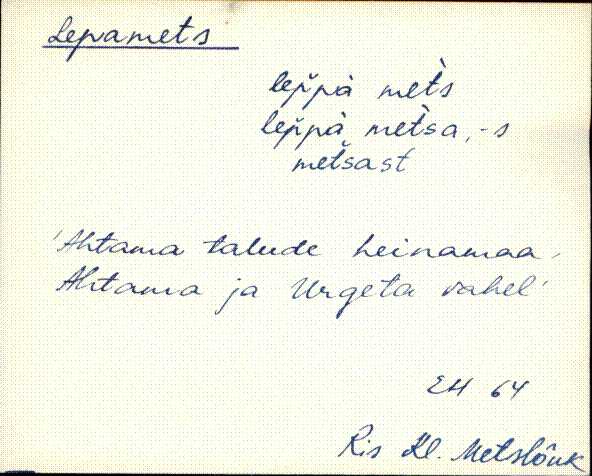 Lepamets
lep̆pà met̀s
lep̆pà met̀sa, -s
met̆sast
'Ahtama talude heinamaa,
Ahtama ja Urgeta vahel'
EH 64
Ris Kl. Metslõuk